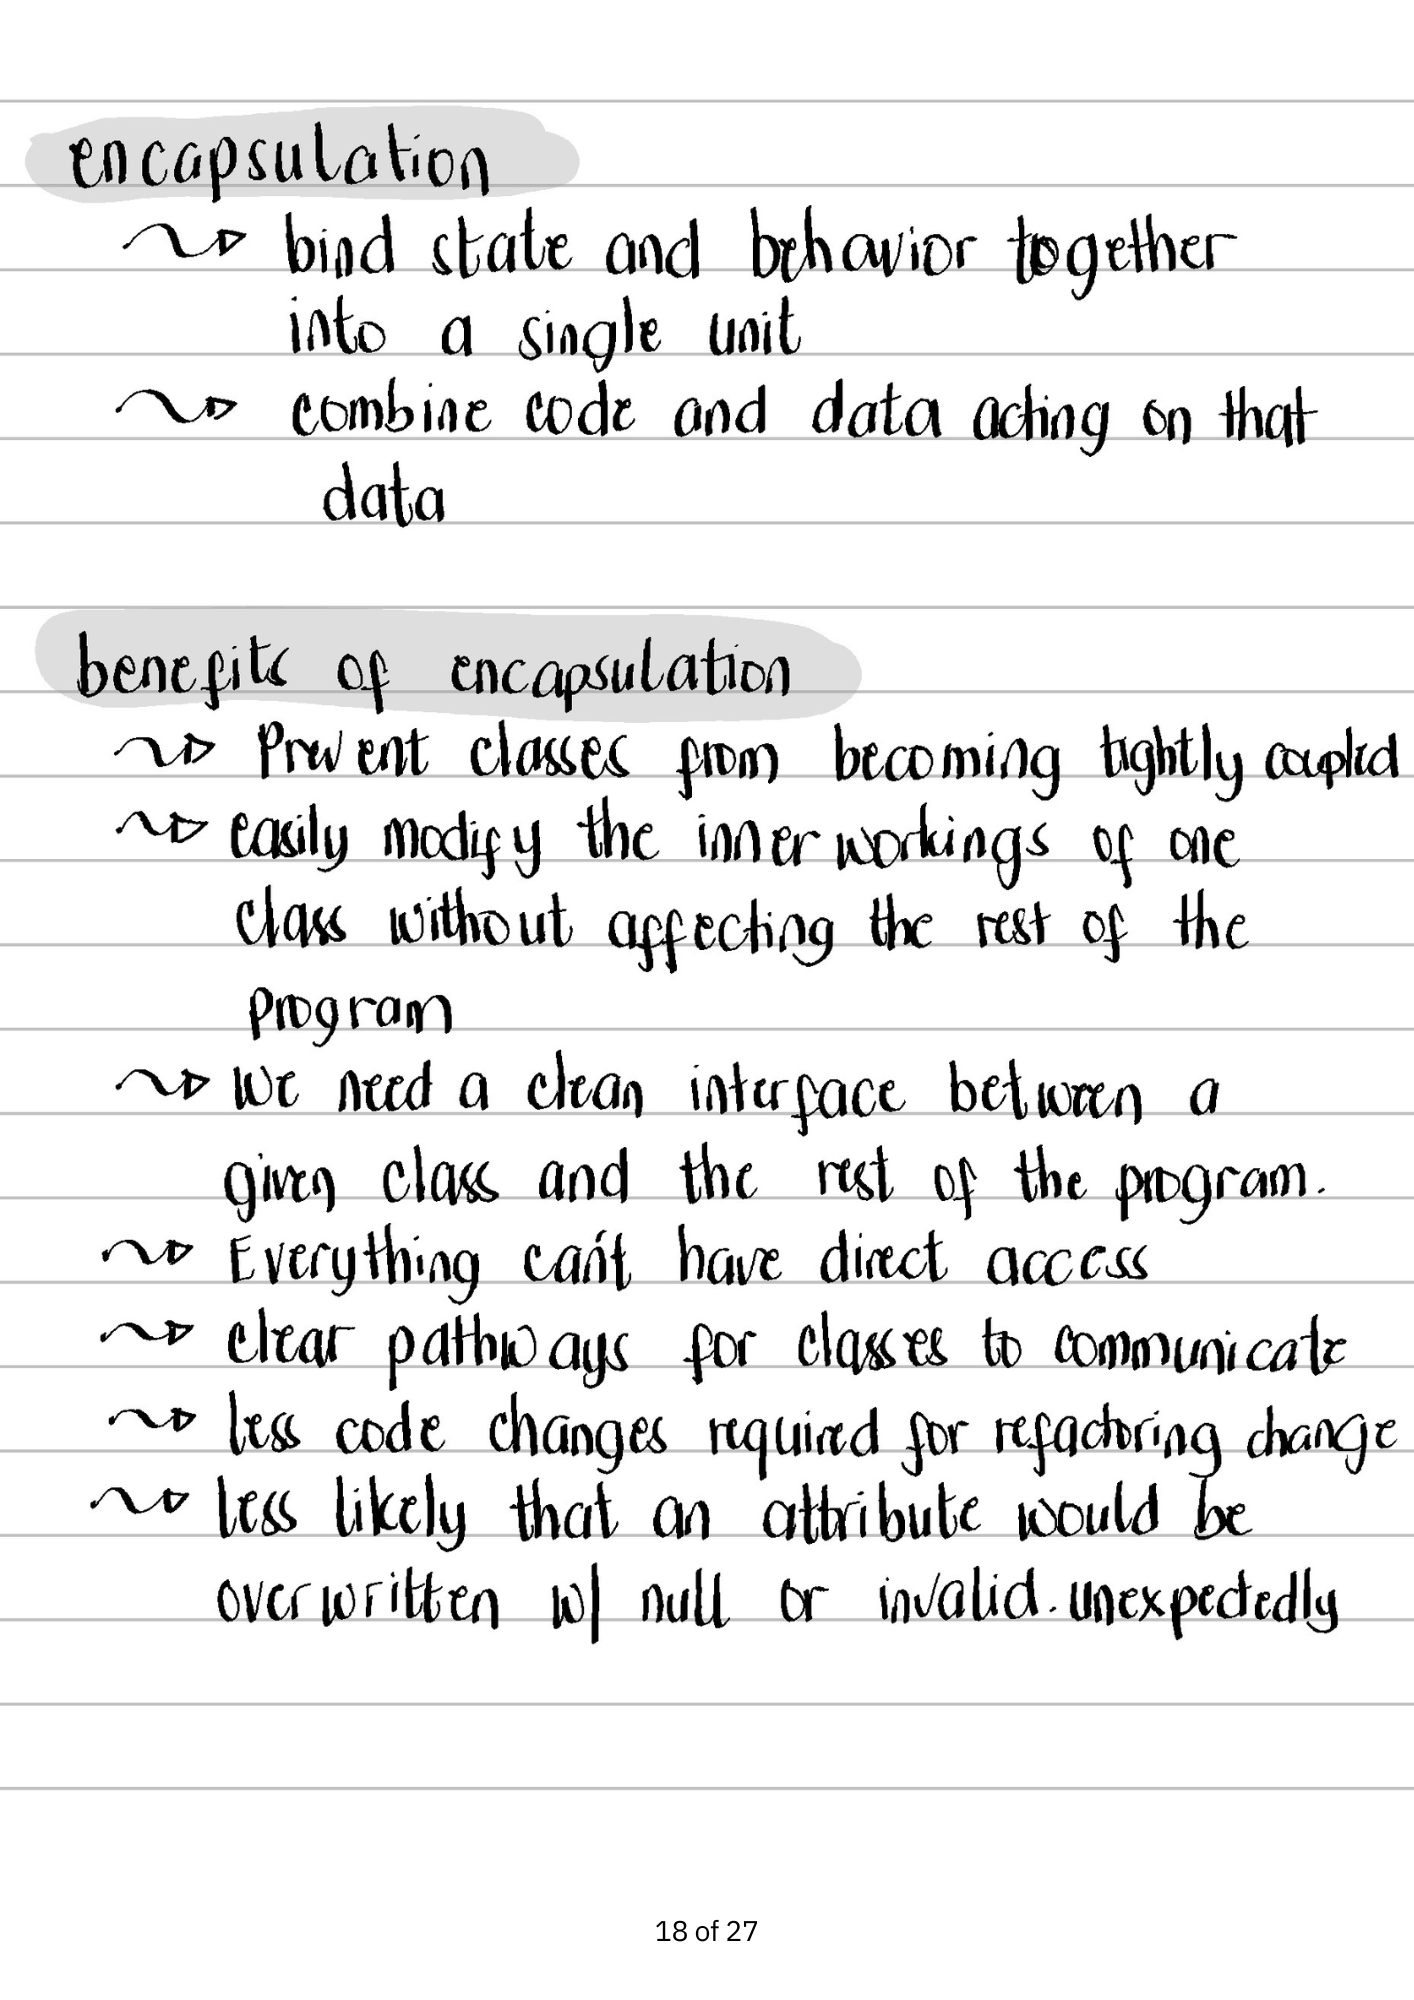 encapsulation
bind state and behavior together
into a single unit
combine code and data acting on that
data
benefits of encapsulation
Prevent classes from becoming tightly coupled
easily modify the inner workings of one
class without affecting the rest of the
program
We need a clean interface between a
given class and the rest of the program.
Everything can't have direct access
clear pathways for classes to communicate
less code changes required for refactoring change
less likely that an attribute would be
overwritten w/ null or invalid. unexpectedly
18 of 27